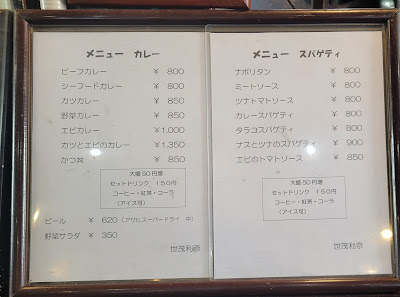 メニュー カレー
ビーフカレー ￥ 800
シーフードカレー ￥ 800
カツカレー ￥ 850
野菜カレー ￥ 850
エビカレー ￥1,000
カツとエビのカレー ￥1,350
かつ丼 ￥ 850
大盛50円増
セットドリンク 150円
コーヒー・紅茶・コーラ
(アイス可)
ビール ￥ 620 (アサヒスーパードライ 中)
野菜サラダ ￥ 350
世茂利奈
メニュー スパゲティ
ナポリタン ￥ 800
ミートソース ￥ 800
ツナトマトソース ￥ 800
カレースパゲティ ￥ 800
タラコスパゲティ ￥ 800
ナスとツナのスパゲティ ￥ 900
エビのトマトソース ￥ 850
大盛50円増
セットドリンク 150円
コーヒー・紅茶・コーラ
(アイス可)
世茂利奈